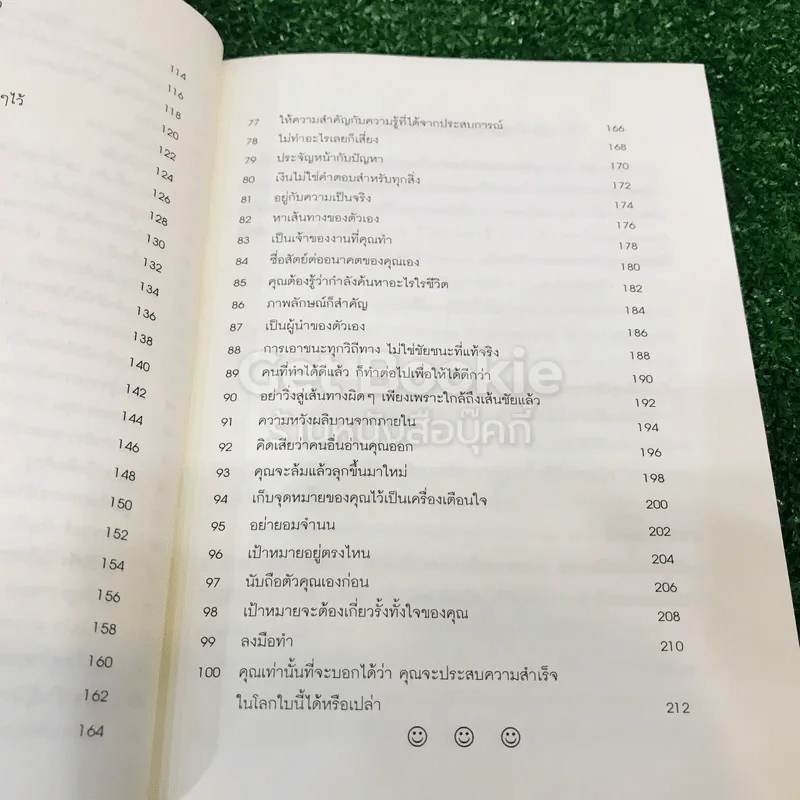 ๆไว้
114
116
118
120
122
124
126
128
130
132
134
136
138
140
142
144
146
148
150
152
154
156
158
160
162
164
77 ให้ความสำคัญกับความรู้ที่ได้จากประสบการณ์ 166
78 ไม่ทำอะไรเลยก็เสี่ยง 168
79 ประจัญหน้ากับปัญหา 170
80 เงินไม่ใช่คำตอบสำหรับทุกสิ่ง 172
81 อยู่กับความเป็นจริง 174
82 หาเส้นทางของตัวเอง 176
83 เป็นเจ้าของงานที่คุณทำ 178
84 ซื่อสัตย์ต่ออนาคตของคุณเอง 180
85 คุณต้องรู้ว่ากำลังค้นหาอะไรในชีวิต 182
86 ภาพลักษณ์ก็สำคัญ 184
87 เป็นผู้นำของตัวเอง 186
88 การเอาชนะทุกวิถีทาง ไม่ใช่ชัยชนะที่แท้จริง 188
89 คนที่ทำได้ดีแล้ว ก็ทำต่อไปเพื่อให้ได้ดีกว่า 190
90 อย่าวิ่งสู่เส้นทางผิดๆ เพียงเพราะใกล้ถึงเส้นชัยแล้ว 192
91 ความหวังผลิบานจากภายใน 194
92 คิดเสียว่าคนอื่นอ่านคุณออก 196
93 คุณจะล้มแล้วลุกขึ้นมาใหม่ 198
94 เก็บจุดหมายของคุณไว้เป็นเครื่องเตือนใจ 200
95 อย่ายอมจำนน 202
96 เป้าหมายอยู่ตรงไหน 204
97 นับถือตัวคุณเองก่อน 206
98 เป้าหมายจะต้องเกี่ยวรั้งทั้งใจของคุณ 208
99 ลงมือทำ 210
100 คุณเท่านั้นที่จะบอกได้ว่า คุณจะประสบความสำเร็จ
ในโลกใบนี้ได้หรือเปล่า 212
Get Bookie
ร้านหนังสือบุ๊คกี้